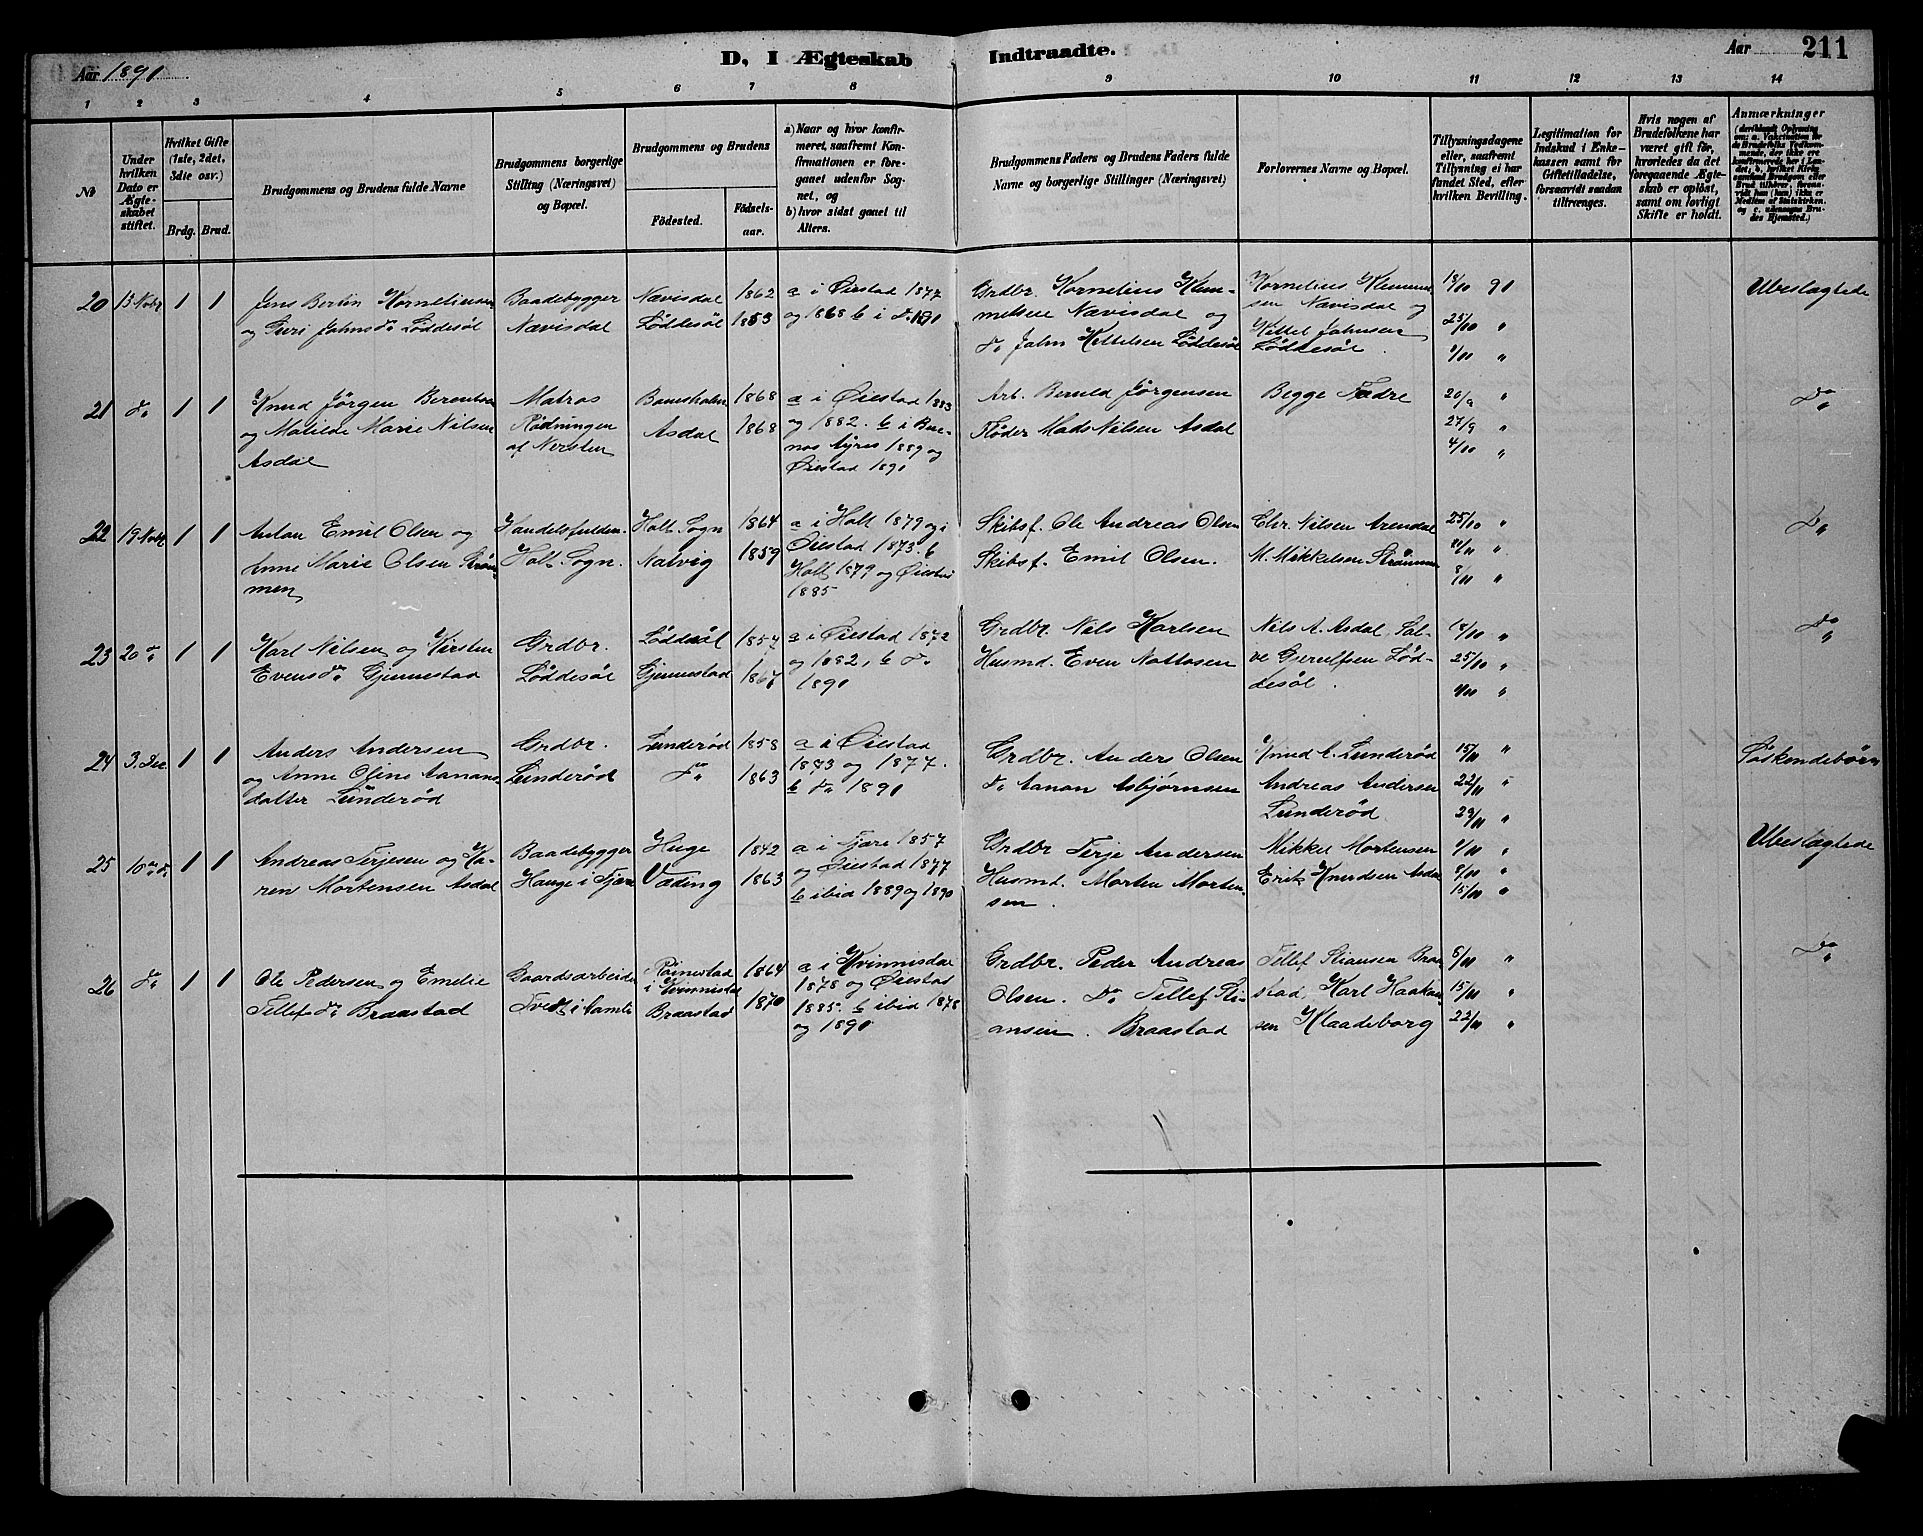 Aar 1890
D, I Ægteskab Indtraadte.
Aar 211
1 2 3 4 5 6 7 8 9 10 11 12 13 14
No
Under hvilken Dato er Ægteskabet stiftet.
Hvilket Gifte (1ste, 2det, 3die osv.)
Brdg. Brud.
Brudgommens og Brudens fulde Navne
Brudgommens borgerlige Stilling (Næringsvei) og Bopæl.
Brudgommens og Brudens
Födested.
Födsels-aar.
a) Naar og hvor konfirmeret, saafremt Konfirmationen er foregaaet udenfor Sognet, og
b) hvor sidst gaaet til Alters.
Brudgommens Faders og Brudens Faders fulde Navne og borgerlige Stillinger (Næringsvei)
Forlovernes Navne og Bopæl.
Tillysningsdagene eller, saafremt Tillysning ei har fundet Sted, efter hvilken Bevilling.
Legitimation for Indskud i Enkekassen samt for Giftetilladelse, forsaavidt saadan tiltrænges.
Hvis nogen af Brudefolkene har været gift før, hvorledes da det foregaaende Ægteskab er opløst, samt om lovligt Skifte er holdt.
Anmærkninger
20 13 Novbr 1 1
Jens Bertin Korneliusen
og Guri Jahnsdr Löddesöl
Baadebygger
Nævisdal
Nævisdal
Löddesöl
1862
1853
a i Öiestad 1877
og 1868 b i do 1890
Grdbr. Kornelius Klem-
metsen Nævisdal og
do Jahn Kittilsen Löddesöl
Kornelius Klemmet-
sen Nævisdal og
Kittel Jahnsen
Löddesöl.
18/10 90
25/10 "
1/11 "
Ubeslægtede
21 do 1 1
Knud Jörgen Berentsen
og Matilde Marie Nilsen
Asdal
Matros
Rödningen
af Nersten
Asdal
1868
1868
a i Öiestad 1883
og 1882. b i Bue-
nos Ayres 1889 og
Öiestad 1890
Arb. Jörgensen
Fløder Mads Nilsen Asdal
Begge Fædre
20/9 "
27/9 "
4/10 "
Do "
22 19 Novbr 1 1
Anton Emil Olsen og
Anne Marie Olsen Ström-
men
Holt Sogn.
Holt Sogn
Natvig
1864
1859
a i Holt 1879 og i
Öiestad 1873. b
Holt 1879 og Öiestad
1885
Skibsf. Ole Andreas Olsen
Skibsf. Emil Olsen.
Chr. Nilsen Arendal
M. Mikkelsen Strömmen
25/10 "
8/11 "
Do "
23 20 do 1 1
Karl Nilsen og Kirsten
Evensdr Gjennestad
Grdbr.
Löddesöl
Löddesöl
Gjennestad
1857
1867
a i Öiestad 1872
og 1882, b do
1890
Grdbr. Nils Karlsen
Husmd. Even Nattosen
Nils A. Asdal, Sal-
ve Gjerulfsen Löd-
desöl.
18/10 "
25/10 "
1/11 "
Do "
24 3. Dec. 1 1
Anders Andersen
og Anne Oline Aanans-
datter Lunderød
Grdbr.
Lunderød
Lunderød
Do
1858
1863
a i Öiestad
1873 og 1877.
b do 1890
Grdbr. Anders Olsen
do Aanan Asbjørnsen
Knud A. Lunderød
Andreas Andersen
Lunderød
15/11 "
22/11 "
29/11 "
Søskendebørn
25 10de do. 1 1
Andreas Terjesen og Ka-
ren Mortensen Asdal
Baadebygger
Hauge i Fjære
Huge
Væding
1842
1863
a i Fjære 1857
og Öiestad 1877
b ibid 1889 og 1890
Grdbr Terje Andersen
Husmd. Morten Morten-
sen.
Mikkel Mortensen
Erik Knudsen Asdal
1/11 "
8/11 "
15/11 "
Ubeslægtede
26 do 1 1
Ole Pedersen og Emelie
Tellefdr Braastad
Gaardsarbeider
Tvedt i Hamle
Röinestad
i Kvinnisdal
Braastad
1864
1870
a i Kvinnisdal
1878 og Öiestad
1885. b ibid 1878
og 1890
Grdbr. Peder Andreas
Olsen. Do Tellef Sti-
ansen. Braastad
Tellef Stiansen Braa-
stad, Karl Haakon-
sen Klaadeborg
8/11 "
15/11 "
22/11 "
Do "